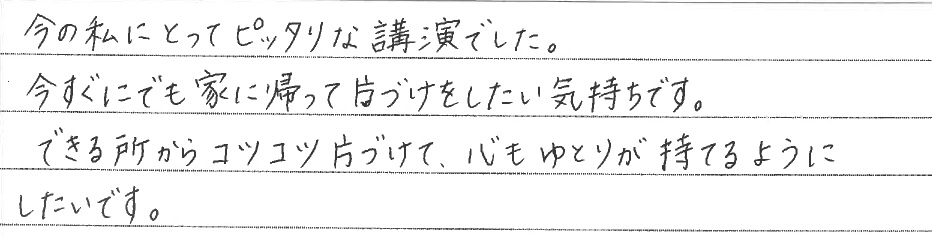 今の私にとってピッタリな講演でした。
今すぐにでも家に帰って片づけをしたい気持ちです。
できる所からコツコツ片づけて、心もゆとりが持てるように
したいです。